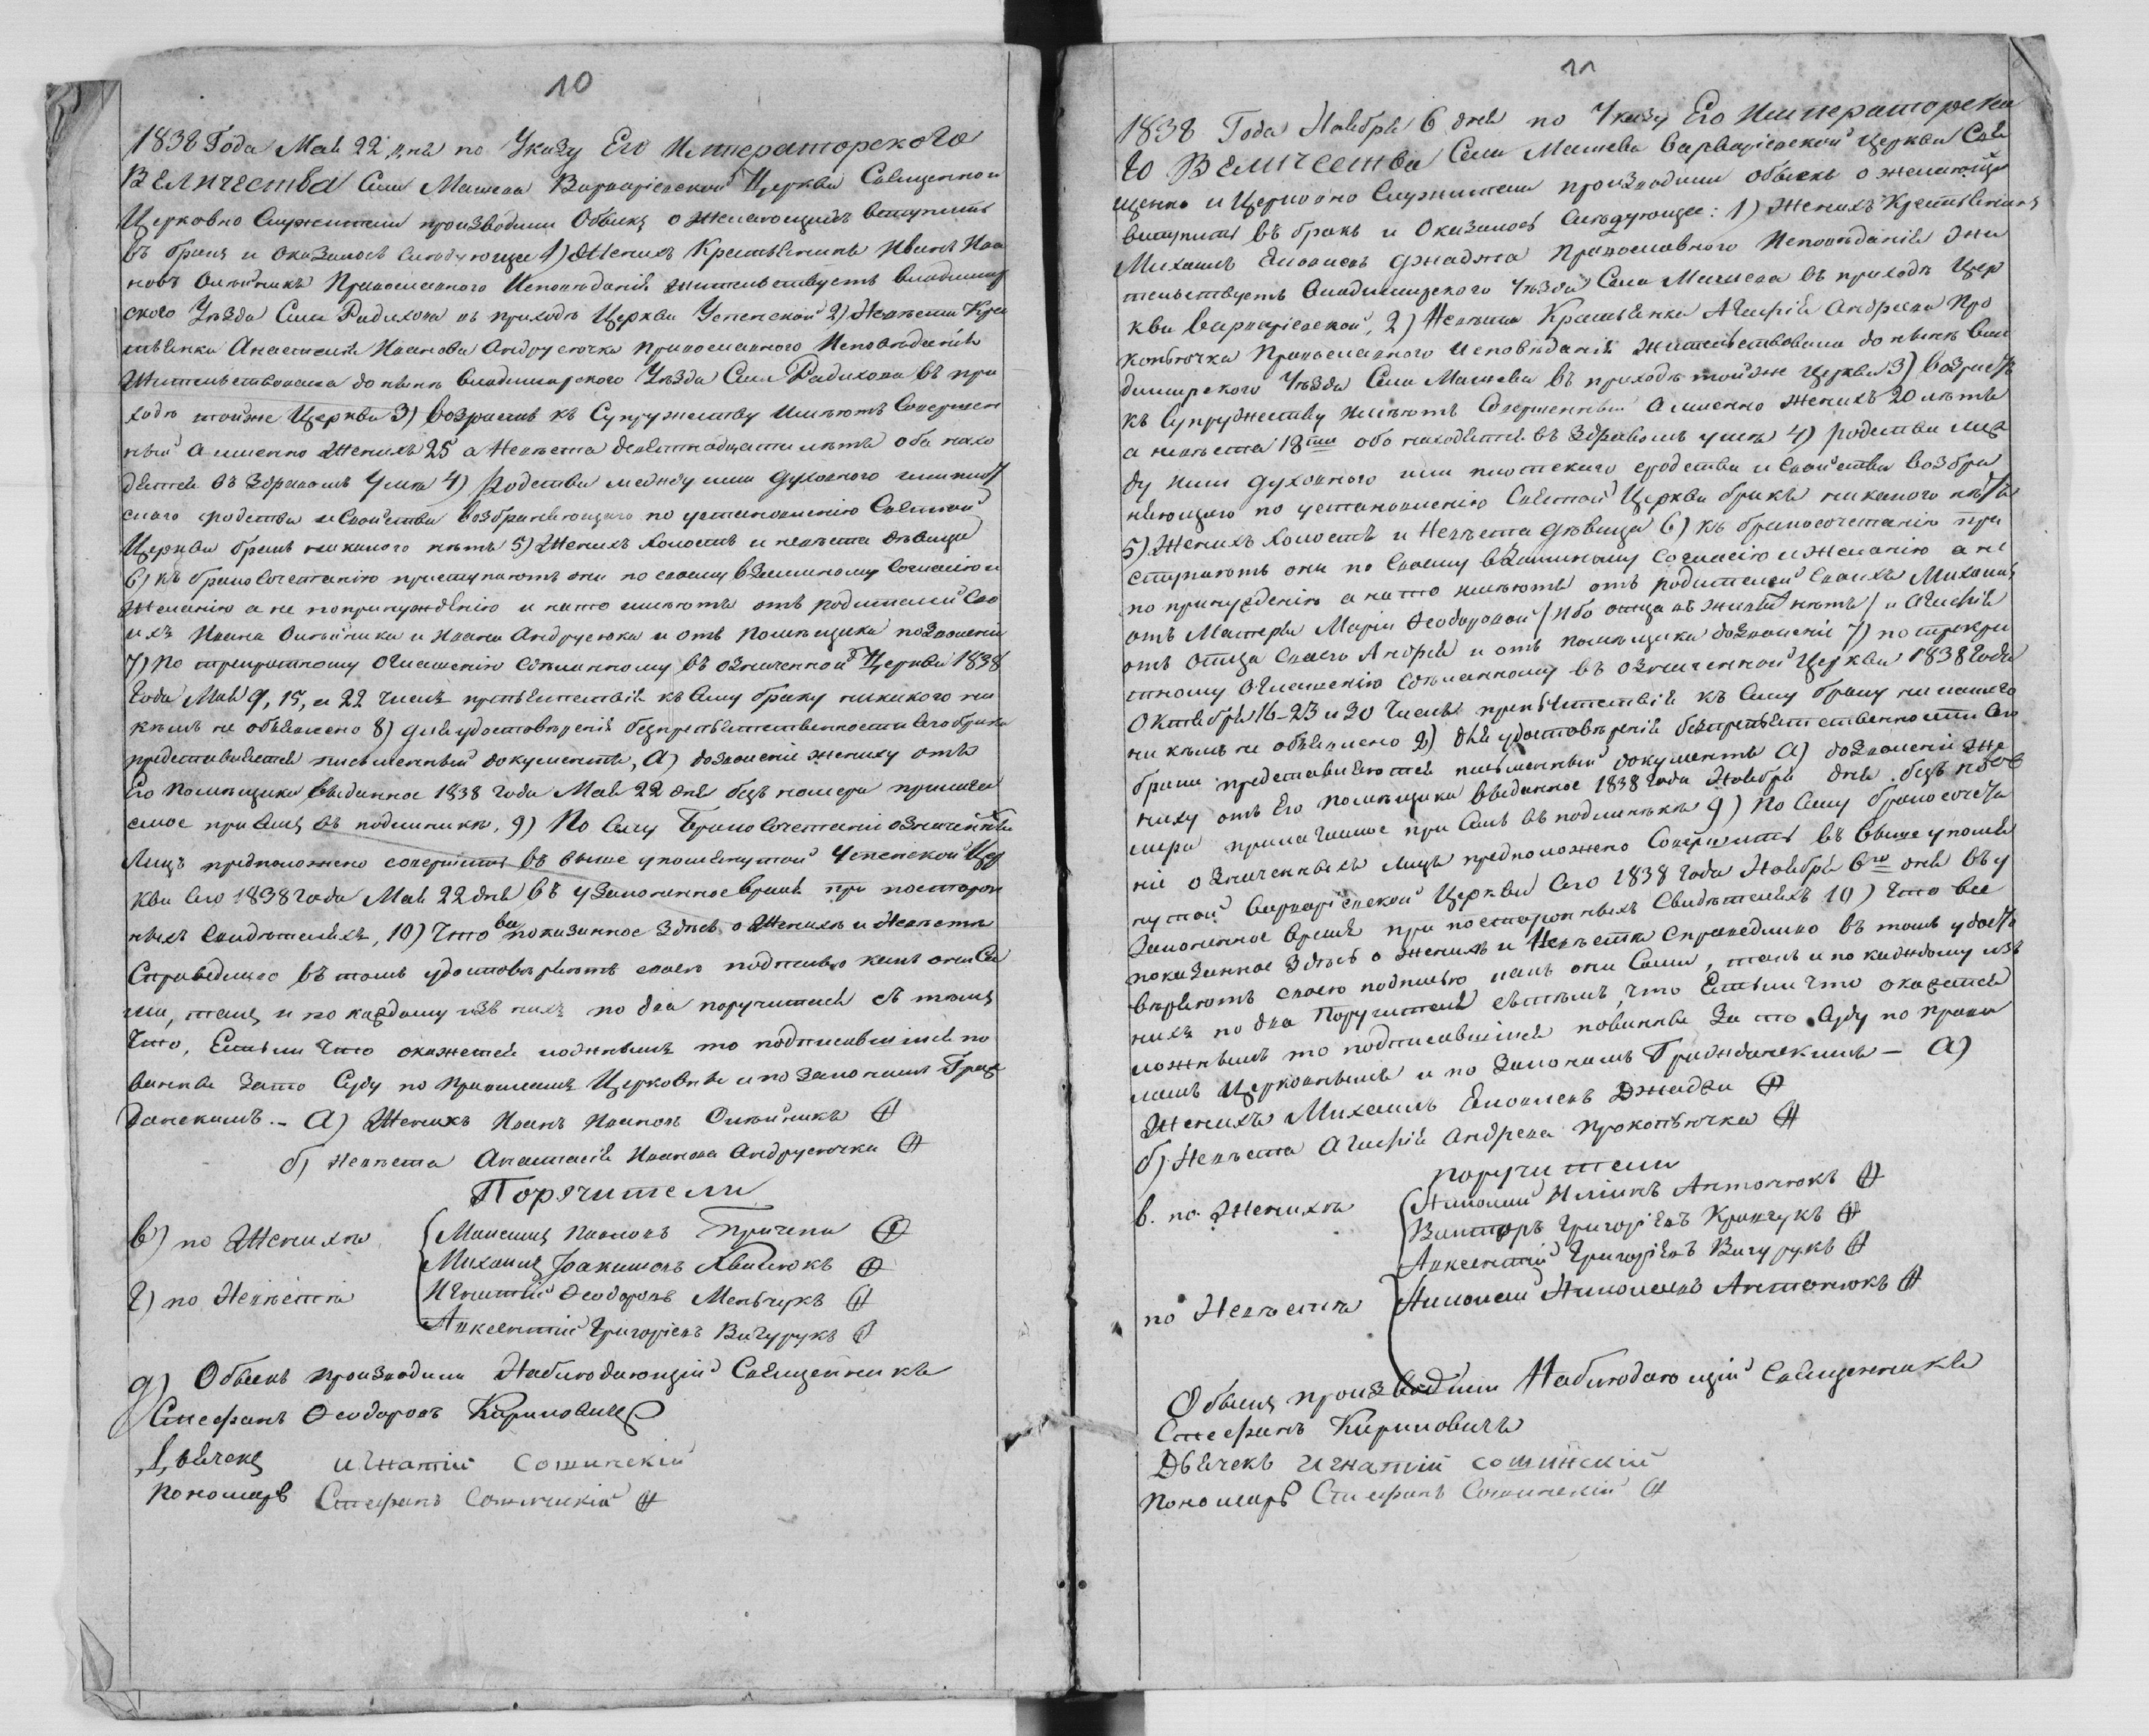 10
1838 Года Мая 22 дня по Указу Его Императорского
Величества Села Машева Варваріевской Церкви Священно и
Церковно Служители производили Обыскъ о желающихъ вступить
въ бракъ и Оказалось слѣдующее 1) Женихъ Крестьянинъ Иванъ Ива
новъ Олѣйникъ Православного Исповѣданія жительствуетъ Владимир
ского Уѣзда Села Радихова въ приходѣ Церкви Успенской 2) Невѣста Кре
стьянка Анастасія Иванова Андрусючка православного Исповѣданія
Жительствовала до нынѣ Владимирского Уѣзда Села Радихова въ при
ходѣ тойже Церкви 3) Возрастъ къ Супружеству имѣютъ Совершен
ный а именно Женихъ 25 а Невѣста девятнадцати лѣтъ оба нахо
дятся въ здравомъ умѣ 4) Родства между ими духовного или плот
ского сродства и Свойства возбраняющаго по установленію Святой
Церкви бракъ никакого нѣтъ 5) Женихъ холостъ и невѣста дѣвица
6) къ бракосочетанію приступаютъ они по своему взаимному Согласію и
Желанію а не по принужденію и на то имѣютъ отъ родителей Сво
ихъ Ивана Олѣйника и Ивана Андрусюка и отъ помѣщика позволеніе
7) По троекратному оглашенію сдѣланному въ означенной Церкви 1838
Года Мая 9, 15, и 22 числъ препятствія къ Сему браку никакого ни
кѣмъ не объявлено 8) для удостовѣренія безпрепятственности сего брака
представляется письменный документъ, а) дозволеніе жениху отъ
Его помѣщика выданное 1838 года Мая 22 дня безъ номера прилага
емое при Семъ въ подлинникѣ, 9) По Сему Бракосочетаніе означенныхъ
Лицъ предположено совершить въ выше упомянутой Успенской Цер
кви сего 1838 года Мая 22 дня въ узаконенное время при посторон
ныхъ Свидѣтеляхъ, 10) Что все показанное здѣсь о Женихѣ и Невѣстѣ
Справедливо въ томъ удостовѣряютъ своею подписью какъ они Са
ми, такъ и по каждому изъ нихъ по два поручителя съ тѣмъ
Что, Естьли что окажется ложнымъ то подписавшіеся по
винны за то Суду по правиламъ Церковнымъ и по законамъ Граж
данскимъ. – а) Женихъ Иванъ Ивановъ Олѣйникъ
б) Невѣста Анастасія Иванова Андрусючка
Поручители
в) по Женихѣ Максимъ Павловъ Причепа
Михаилъ Іоакимовъ Хвилюкъ
г) по Невѣстѣ Игнатій Феодоровъ Мельчукъ
Авксентій Григоріевъ Вигурукъ
д) Обыскъ производили Наблюдающій Священникъ
Стефанъ Феодоровъ Кириловичъ
Дьячекъ Игнатій Сошинскій
Пономарь Стефанъ Сошинскій
11
1838 Года Ноября 6 дня по Указу Его Императорска
го Величества Села Машева Варваріевской Церкви Свя
щенно и Церковно Служители производили обыскъ о желающихъ
вступить въ бракъ и Оказалось слѣдующее: 1) Женихъ Крестьянинъ
Михаилъ Яковлевъ Джаджа Православного Исповѣданія жи
тельствуетъ Владимирского Уѣзда Села Машева въ приходѣ Цер
кви Варваріевской, 2) Невѣста Крестьянка Агафія Андреева Про
копьючка Православного исповѣданія жительствовала до нынѣ Вла
димирского Уѣзда Села Машева въ приходѣ тойже Церкви 3) Возрастъ
къ Супружеству имѣютъ Совершенный а именно Женихъ 20 лѣтъ
а невѣста 18ти оба находятся въ здравомъ умѣ 4) родства меж
ду ими духовного или плотского сродства и Свойства возбра
няющаго по установленію Святой Церкви бракъ никакого нѣтъ
5) Женихъ холостъ и Невѣста дѣвица 6) къ бракосочетанію при
ступаютъ они по Своему взаимному Согласію и желанію а не
по принужденію а на то имѣютъ отъ родителей Своихъ Михаилъ
отъ Матери Маріи Феодоровой /ибо отца въ живыхъ нѣтъ/ и Агафія
отъ отца своего Андрея и отъ помѣщика дозволеніе 7) по троекра
тному оглашенію Сдѣланному въ означенной Церкви 1838 года
Октября 16-23 и 30 числъ препятствія къ Сему браку никакого
ни кѣмъ не объявлено 8) для удостовѣренія безпрепятственности сего
брака представляется письменный документъ а) дозволеніе же
ниху отъ Его помѣщика выданное 1838 года Ноября дня безъ но
мера прилагаемое при Семъ въ подлинникѣ 9) По Сему бракосочета
ніе означенныхъ лицъ предположено Совершить въ выше упомя
нутой Варваріевской Церкви сего 1838 года Ноября 6го дня въ у
законенное время при постороннихъ Свидѣтеляхъ 10) Что все
показанное здѣсь о женихѣ и Невѣстѣ справедливо въ томъ удосто
вѣряютъ своею подписью какъ они Сами, такъ и по каждому изъ
нихъ по два Поручителя сътѣмъ, что Естьли что окажется
ложнымъ то подписавшіеся повинны за то Суду по прави
ламъ Церковнымъ и по законамъ Гражданскимъ – а)
Женихъ Михаилъ Яковлевъ Джаджа
б) Невѣста Агафія Андреева Прокопьючка
поручители
в. по Женихѣ Николай Иліинъ Антонюкъ
Викторъ Григоріевъ Кравчукъ
Авксентій Григоріевъ Вигурукъ
по Невѣстѣ Николай Николаевъ Антонюкъ
Обыскъ производили Наблюдающій Священникъ
Стефанъ Кириловичъ
Дьячекъ Игнатій Сошинскій
Пономарь Стефанъ Сошинскій